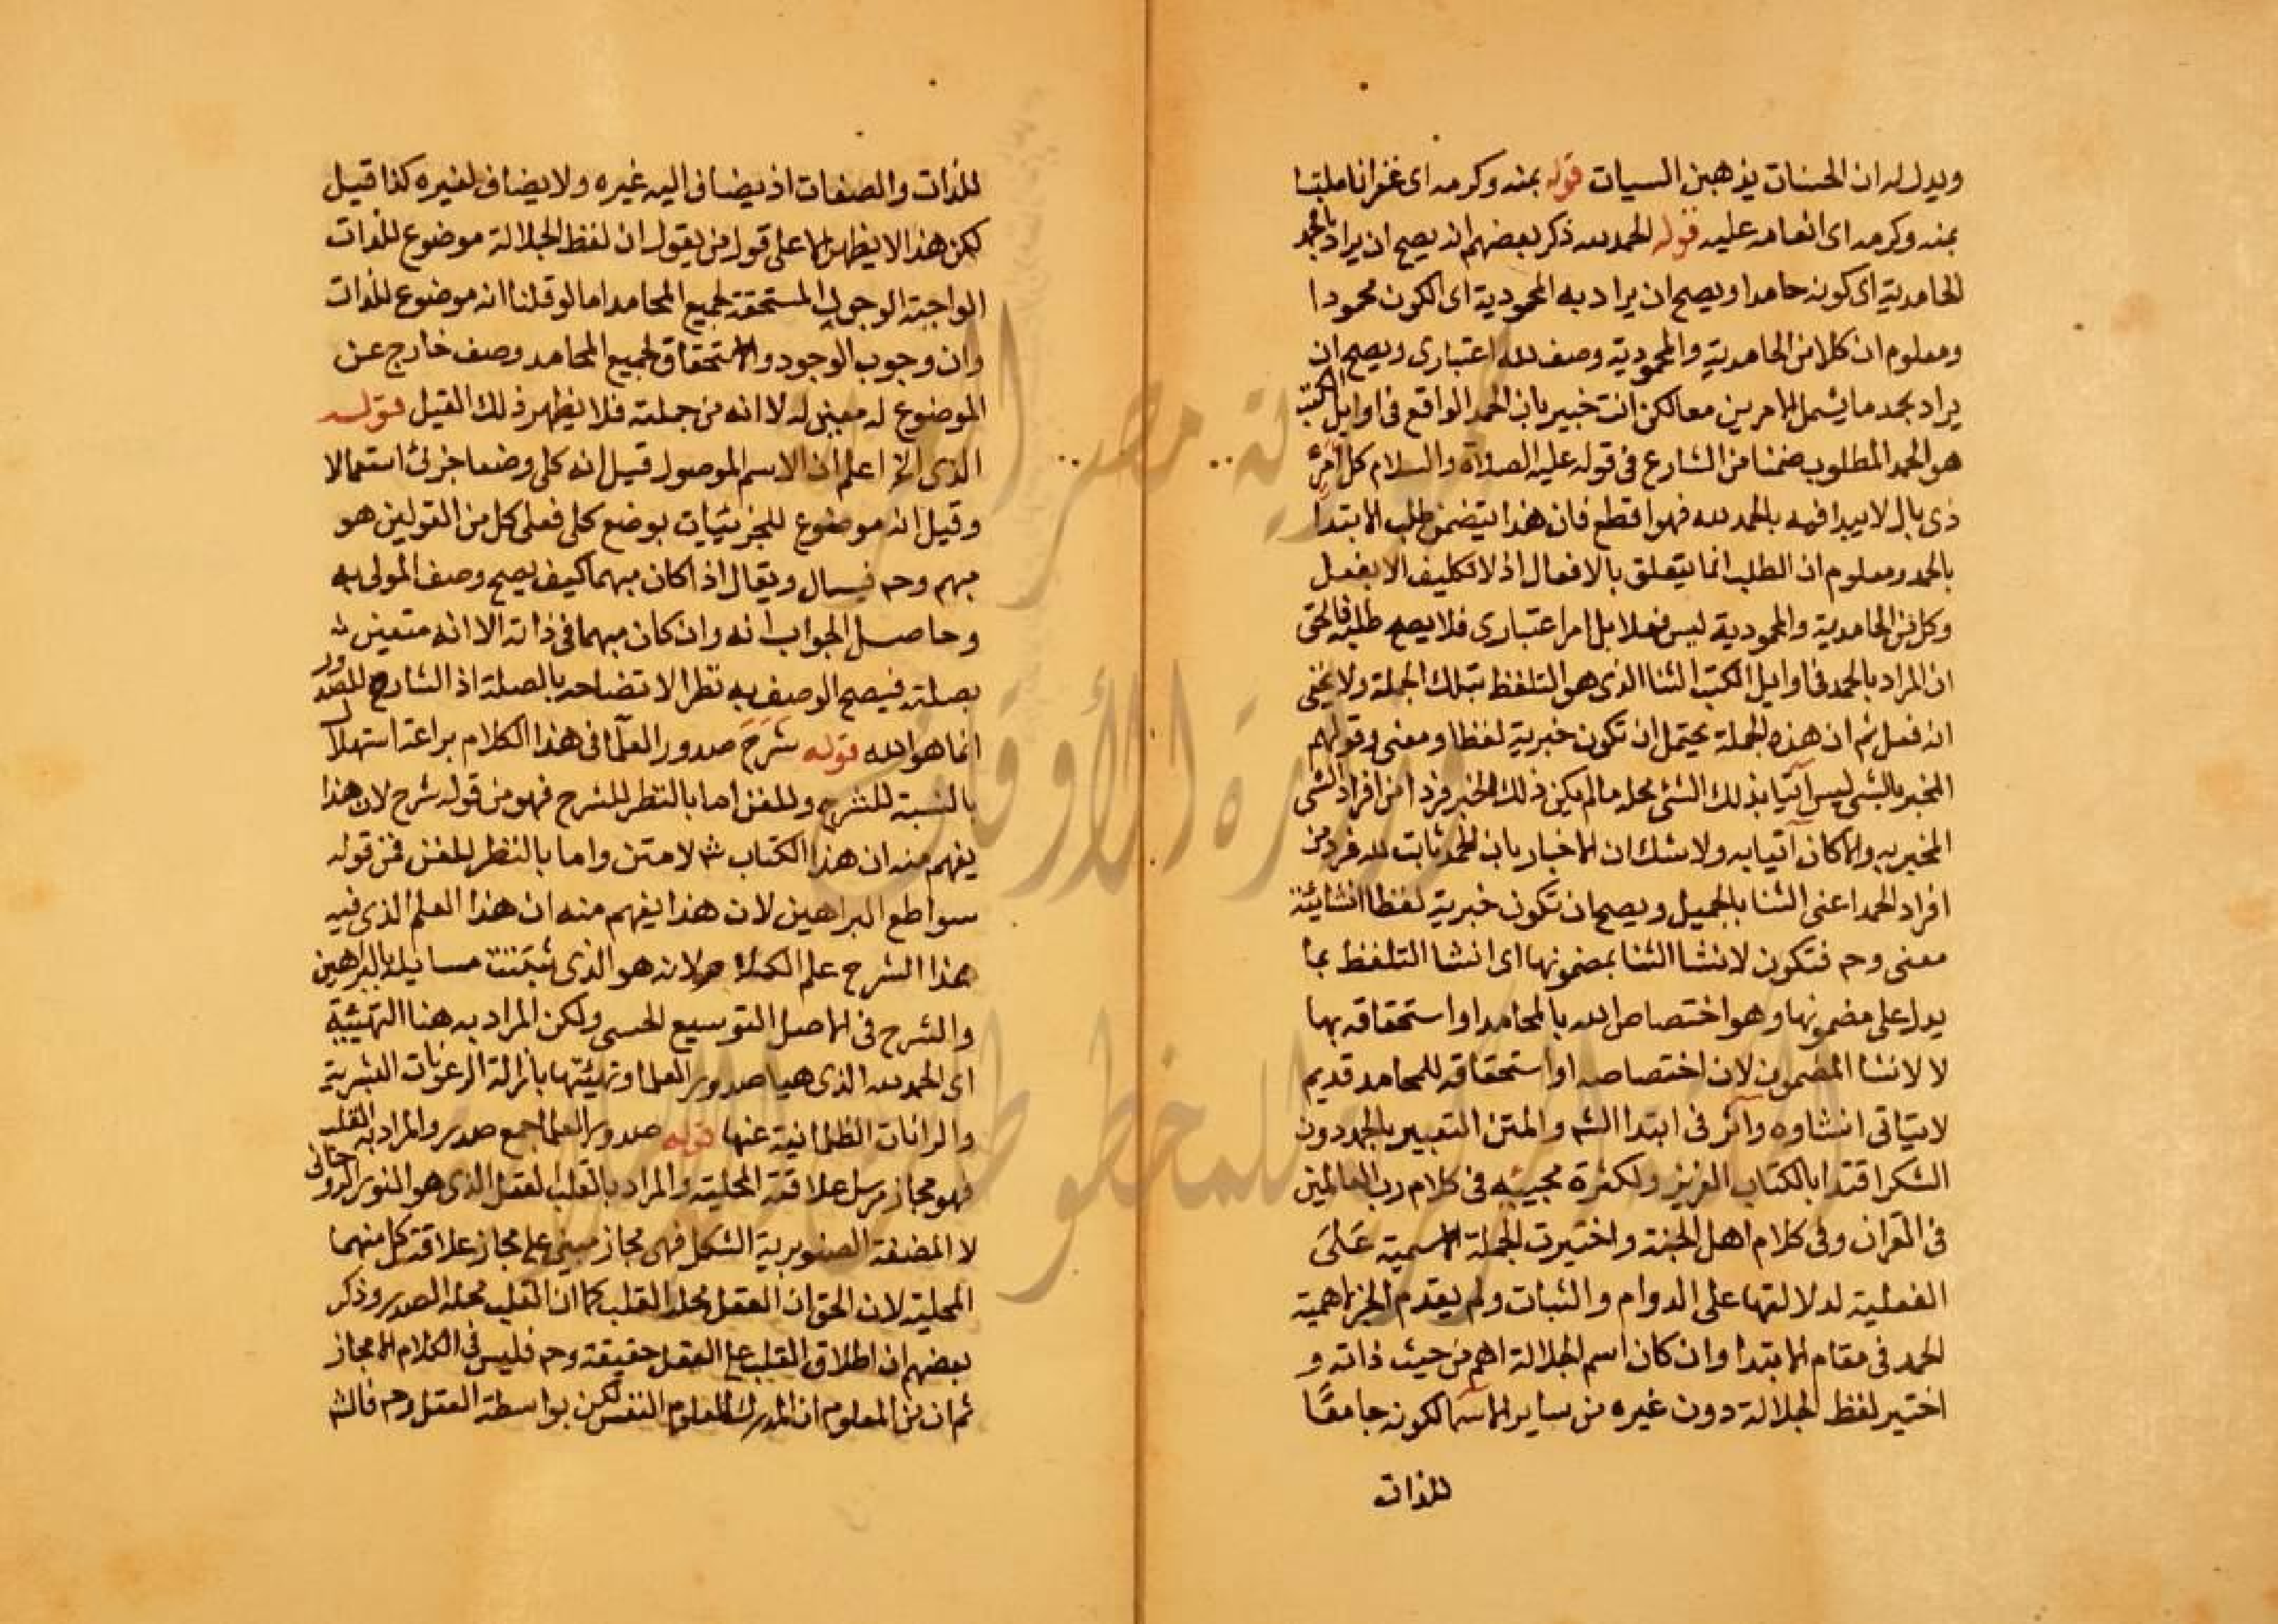 ويدل له ان الحسنات يذهبن السيات قوله بمنه وكرمه اى غفرانا ملتبسا
بمنه وكرمه اى انعامه عليه قوله الحمد لله ذكر بعضهم انه يصح ان يراد بالحمد
الحامدية اى كونه حامدا ويصح ان يراد به المحمودية اى الكون محمودا
ومعلوم ان كلا من الحامدية والمحمودية وصف لله اعتبارى ويصح ان
يراد بحمد ما يشمل الامرين معا لكن انت خبير بان الحمد الواقع فى اوايل الكتب
هو الحمد المطلوب ضمنا من الشارع فى قوله عليه الصلاة والسلام كل امر
ذى بال لا يبدا فيه بالحمد لله فهو اقطع فان هذا يتضمن طلب الابتدا
بالحمد ومعلوم ان الطلب انما يتعلق بالافعال اذ لا تكليف الا بفعل
وكل من الحامدية والمحمودية ليس فعلا بل امر اعتبارى فلا يصح طلبه فالحق
ان المراد بالحمد فى اوايل الكتب الثنا الذى هو التلفظ بتلك الجملة ولا يخفى
انه فعل ثم ان هذه الجملة يحتمل ان تكون خبرية لفظا ومعنى وقولهم
المخبر بالشى ليس آتيا بذلك الشى محله ما لم يكن ذلك الخبر فردا من افراد الشى
المخبر به والا كان آتيا به ولا شك ان الاخبار بان الحمد ثابت لله فرد من
افراد الحمد اعنى الثنا بالجميل ويصح ان تكون خبرية لفظا انشايئة
معنى وح فتكون لانشا الثنا بمضمونها اى انشا التلفظ بما
يدل على مضمونها وهو اختصاص الله بالمحامد او استحقاقه بها
لا لانشا المضمون لان اختصاصه او استحقاقه للمحامد قديم
لا يتاتى انشاوه وآثر فى ابتدا الشر والمتن التعبير بالحمد دون
الشكر اقتدا بالكتاب العزيز ولكثرة مجيئه فى كلام رب العالمين
فى القران وفى كلام اهل الجنة واختيرت الجملة الاسمية على
الفعلية لدلالتها على الدوام والثبات ولم يقدم الخبر لاهمية
الحمد فى مقام الابتدا وان كان اسم الجلالة اهم من حيث ذاته و
اختير لفظ الجلالة دون غيره من ساير الاسما لكونه جامعا
للذات
للذات والصفات اذ يضاف اليه غيره ولا يضاف لغيره كذا قيل
لكن هذا لا يظهر الا على قول من يقول ان لفظ الجلالة موضوع للذات
الواجبة الوجود المستحقة لجميع المحامد اما لو قلنا انه موضوع للذات
وان وجوب الوجود والاستحقاق لجميع المحامد وصف خارج عن
الموضوع له معين له لا انه من جملته فلا يظهر ذلك القيل قوله
الذى الخ اعلم ان الاسم الموصول قيل انه كلى وضعا جزئى استعمالا
وقيل انه موضوع للجزئيات بوضع كلى فعلى كل من القولين هو
مبهم وح فيسال ويقال اذا كان مبهما كيف يصح وصف المولى به
وحاصل الجواب انه وان كان مبهما فى ذاته الا انه متعين له
بصلته فيصح الوصف به نظرا لاتضاحه بالصلة اذ الشارح للصدور
انما هو الله قوله شرح صدور العلما فى هذا الكلام براعة استهلال
بالنسبة للشرح وللفن اما بالنظر للشرح فهو من قوله شرح لان هذا
يفهم منه ان هذا الكتاب شر لا متن واما بالنظر للفن فمن قوله
سواطع البراهين لان هذا يفهم منه ان هذا العلم الذى فيه
هذا الشرح علم الكلام لانه هو الذى ثبتت مسايله بالبراهين
والشرح فى الاصل التوسيع الحسى ولكن المراد به هنا التهيئة
اى الحمد لله الذى هيا صدور العلما وتهيئتها بازالة الرعونات البشرية
والرانات الظلمانية عنها قوله صدور العلما جمع صدر والمراد به القلب
فهو مجاز مرسل علاقته المحلية والمراد بالقلب العقل الذى هو النور الروحانى
لا المضغة الصنوبرية الشكل فهى مجاز مبنى على مجاز علاقة كل منهما
المحلية لان الحق ان العقل محله القلب كما ان القلب محله الصدر وذكر
بعضهم ان اطلاق القلب على العقل حقيقة وح فليس فى الكلام الا مجاز
ثم ان من المعلوم ان المدرك للعلوم النفس لكن بواسطة العقل وح فالشر